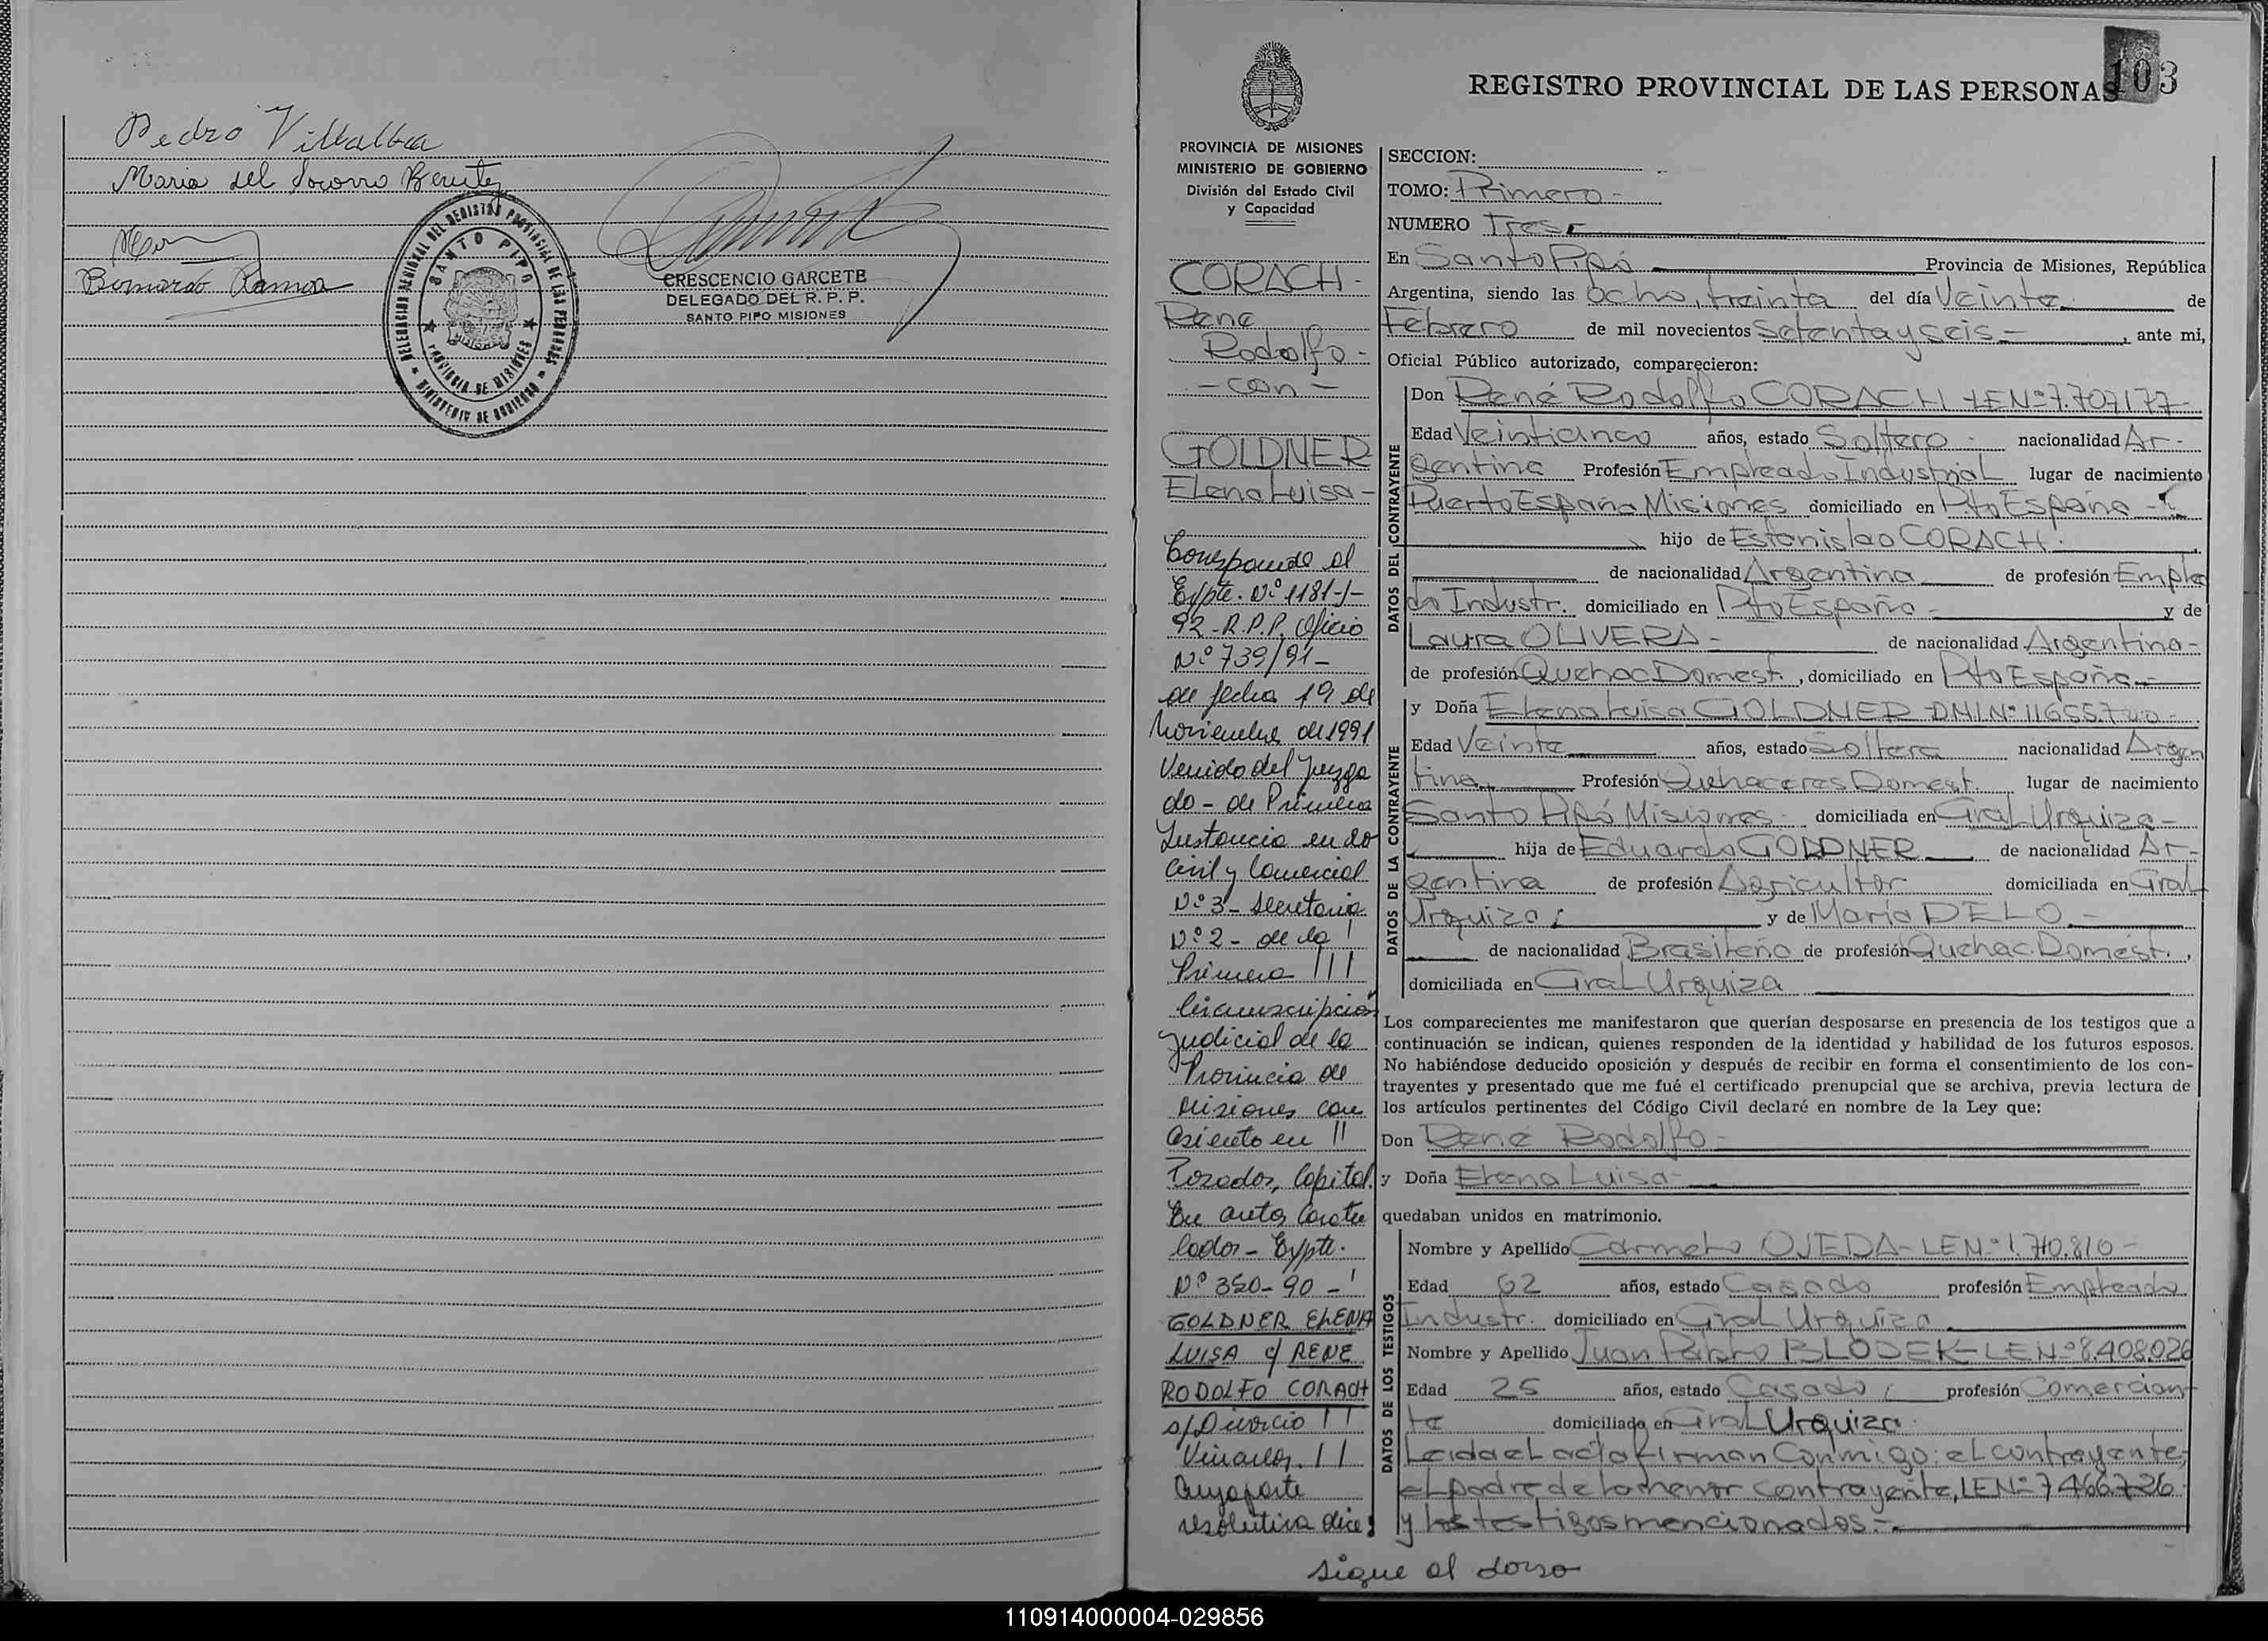 Pedro Villalba
Maria del Socorro Benitez
Bernardo Ramoa
DELEGACION REGIONAL DEL REGISTRO PROVINCIAL DE LAS PERSONAS
SANTO PIPO
PROVINCIA DE MISIONES
MINISTERIO DE GOBIERNO
CRESCENCIO GARCETE
DELEGADO DEL R. P. P.
SANTO PIPO MISIONES
103
REGISTRO PROVINCIAL DE LAS PERSONAS
PROVINCIA DE MISIONES
MINISTERIO DE GOBIERNO
División del Estado Civil
y Capacidad
CORACH-
Rene
Rodolfo-
-con-
GOLDNER
Elena Luisa-
Corresponde al
Expte. Nº 1181-J-
92-R.P.P. Oficio
Nº 739/91-
de fecha 19 de
Noviembre de 1991
Venido del Juzga
do - de Primera
Instancia en lo
Civil y Comercial
Nº 3- Secretaria
Nº 2- de la
Primera
Circunscripción
Judicial de la
Provincia de
Misiones con
asiento en
Posadas, Capital.
En autos Caratu
lados- Expte.
Nº 350-90-
GOLDNER ELENA
LUISA c/ RENE
RODOLFO CORACH
s/Divorcio
Vincular.
Cuya parte
resolutiva dice:
SECCION:
TOMO: Primero-
NUMERO Tres-
En Santo Pipó Provincia de Misiones, República
Argentina, siendo las Ocho, treinta del día Veinte de
Febrero de mil novecientos Setenta y seis- , ante mi,
Oficial Público autorizado, comparecieron:
DATOS DEL CONTRAYENTE
Don René Rodolfo CORACH LE Nº 7.707177
Edad Veinticinco años, estado Soltero- nacionalidad Ar-
gentina Profesión Empleado Industrial lugar de nacimiento
Puerto España Misiones domiciliado en Pto España-
hijo de Estanislao CORACH.
de nacionalidad Argentina de profesión Emplea
do Industr. domiciliado en Pto España- y de
Laura OLIVERA- de nacionalidad Argentina-
de profesión Quehac Domest. , domiciliado en Pto España-
DATOS DE LA CONTRAYENTE
y Doña Elena Luisa GOLDNER DNI Nº 11655.700-
Edad Veinte años, estado Soltera nacionalidad Argen
tina, Profesión Quehaceres Domest. lugar de nacimiento
Santo Pipó Misiones- domiciliada en Gral Urquiza-
hija de Eduardo GOLDNER de nacionalidad Ar-
gentina de profesión Agricultor domiciliada en Gral
Urquiza; y de María DELO-
de nacionalidad Brasileño de profesión Quehac. Domést. ,
domiciliada en Gral Urquiza
Los comparecientes me manifestaron que querían desposarse en presencia de los testigos que a
continuación se indican, quienes responden de la identidad y habilidad de los futuros esposos.
No habiéndose deducido oposición y después de recibir en forma el consentimiento de los con-
trayentes y presentado que me fué el certificado prenupcial que se archiva, previa lectura de
los artículos pertinentes del Código Civil declaré en nombre de la Ley que:
Don René Rodolfo-
y Doña Elena Luisa-
quedaban unidos en matrimonio.
DATOS DE LOS TESTIGOS
Nombre y Apellido Carmelo OJEDA- LE Nº 1.710.810-
Edad 62 años, estado Casado profesión Empleado
Industr. domiciliado en Gral Urquiza
Nombre y Apellido Juan Pablo BLODEK- LE Nº 8.408.026
Edad 25 años, estado Casado, profesión Comercian
te domiciliado en Gral Urquiza.
Leida el acta firman Conmigo: el contrayente,
el padre de la menor contrayente, LE Nº 7466.726
y los testigos mencionados.-
sigue al dorso
110914000004-029856